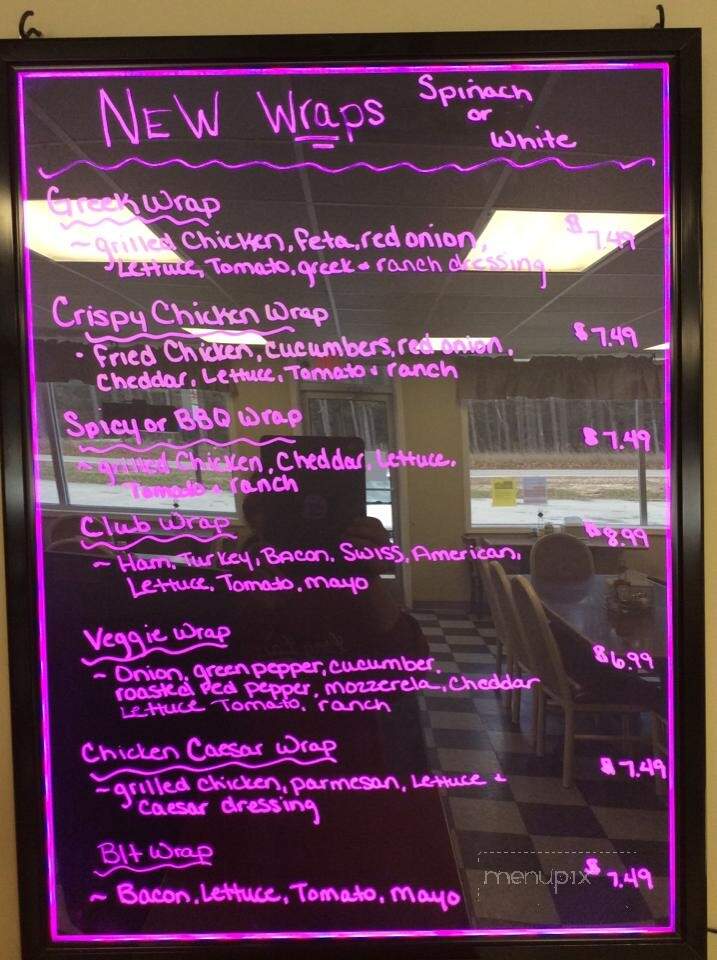 New Wraps Spinach
or
White
Greek Wrap
~ grilled Chicken, Feta, red onion, $7.49
Lettuce, Tomato, greek & ranch dressing
Crispy Chicken Wrap
· Fried Chicken, cucumbers, red onion, $7.49
Cheddar, Lettuce, Tomato & ranch
Spicy or BBQ Wrap
~ grilled Chicken, Cheddar, Lettuce, $7.49
Tomato & ranch
Club Wrap $8.99
~ Ham, Turkey, Bacon, Swiss, American,
Lettuce, Tomato, mayo
Veggie Wrap
~ Onion, green pepper, cucumber, $6.99
roasted red pepper, mozzerela, Cheddar
Lettuce Tomato, ranch
Chicken Caesar Wrap
~ grilled chicken, parmesan, Lettuce & $7.49
Caesar dressing
Blt Wrap
~ Bacon, Lettuce, Tomato, Mayo $7.49
menupix